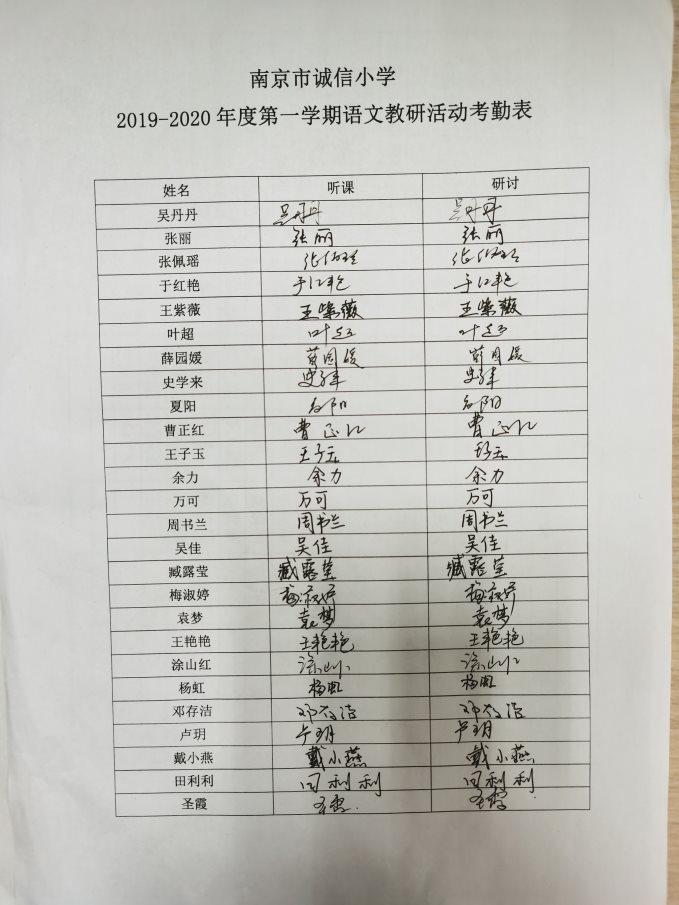 南京市诚信小学
2019-2020 年度第一学期语文教研活动考勤表
姓名 听课 研讨
吴丹丹 吴丹丹 吴丹丹
张丽 张丽 张丽
张佩瑶 张佩瑶 张佩瑶
于红艳 于红艳 于红艳
王紫薇 王紫薇 王紫薇
叶超 叶超 叶超
薛园媛 薛园媛 薛园媛
史学来 史学来 史学来
夏阳 夏阳 夏阳
曹正红 曹正红 曹正红
王子玉 王子玉 王子玉
余力 余力 余力
万可 万可 万可
周书兰 周书兰 周书兰
吴佳 吴佳 吴佳
臧露莹 臧露莹 臧露莹
梅淑婷 梅淑婷 梅淑婷
袁梦 袁梦 袁梦
王艳艳 王艳艳 王艳艳
涂山红 涂山红 涂山红
杨虹 杨虹 杨虹
邓存洁 邓存洁 邓存洁
卢玥 卢玥 卢玥
戴小燕 戴小燕 戴小燕
田利利 田利利 田利利
圣霞 圣霞 圣霞